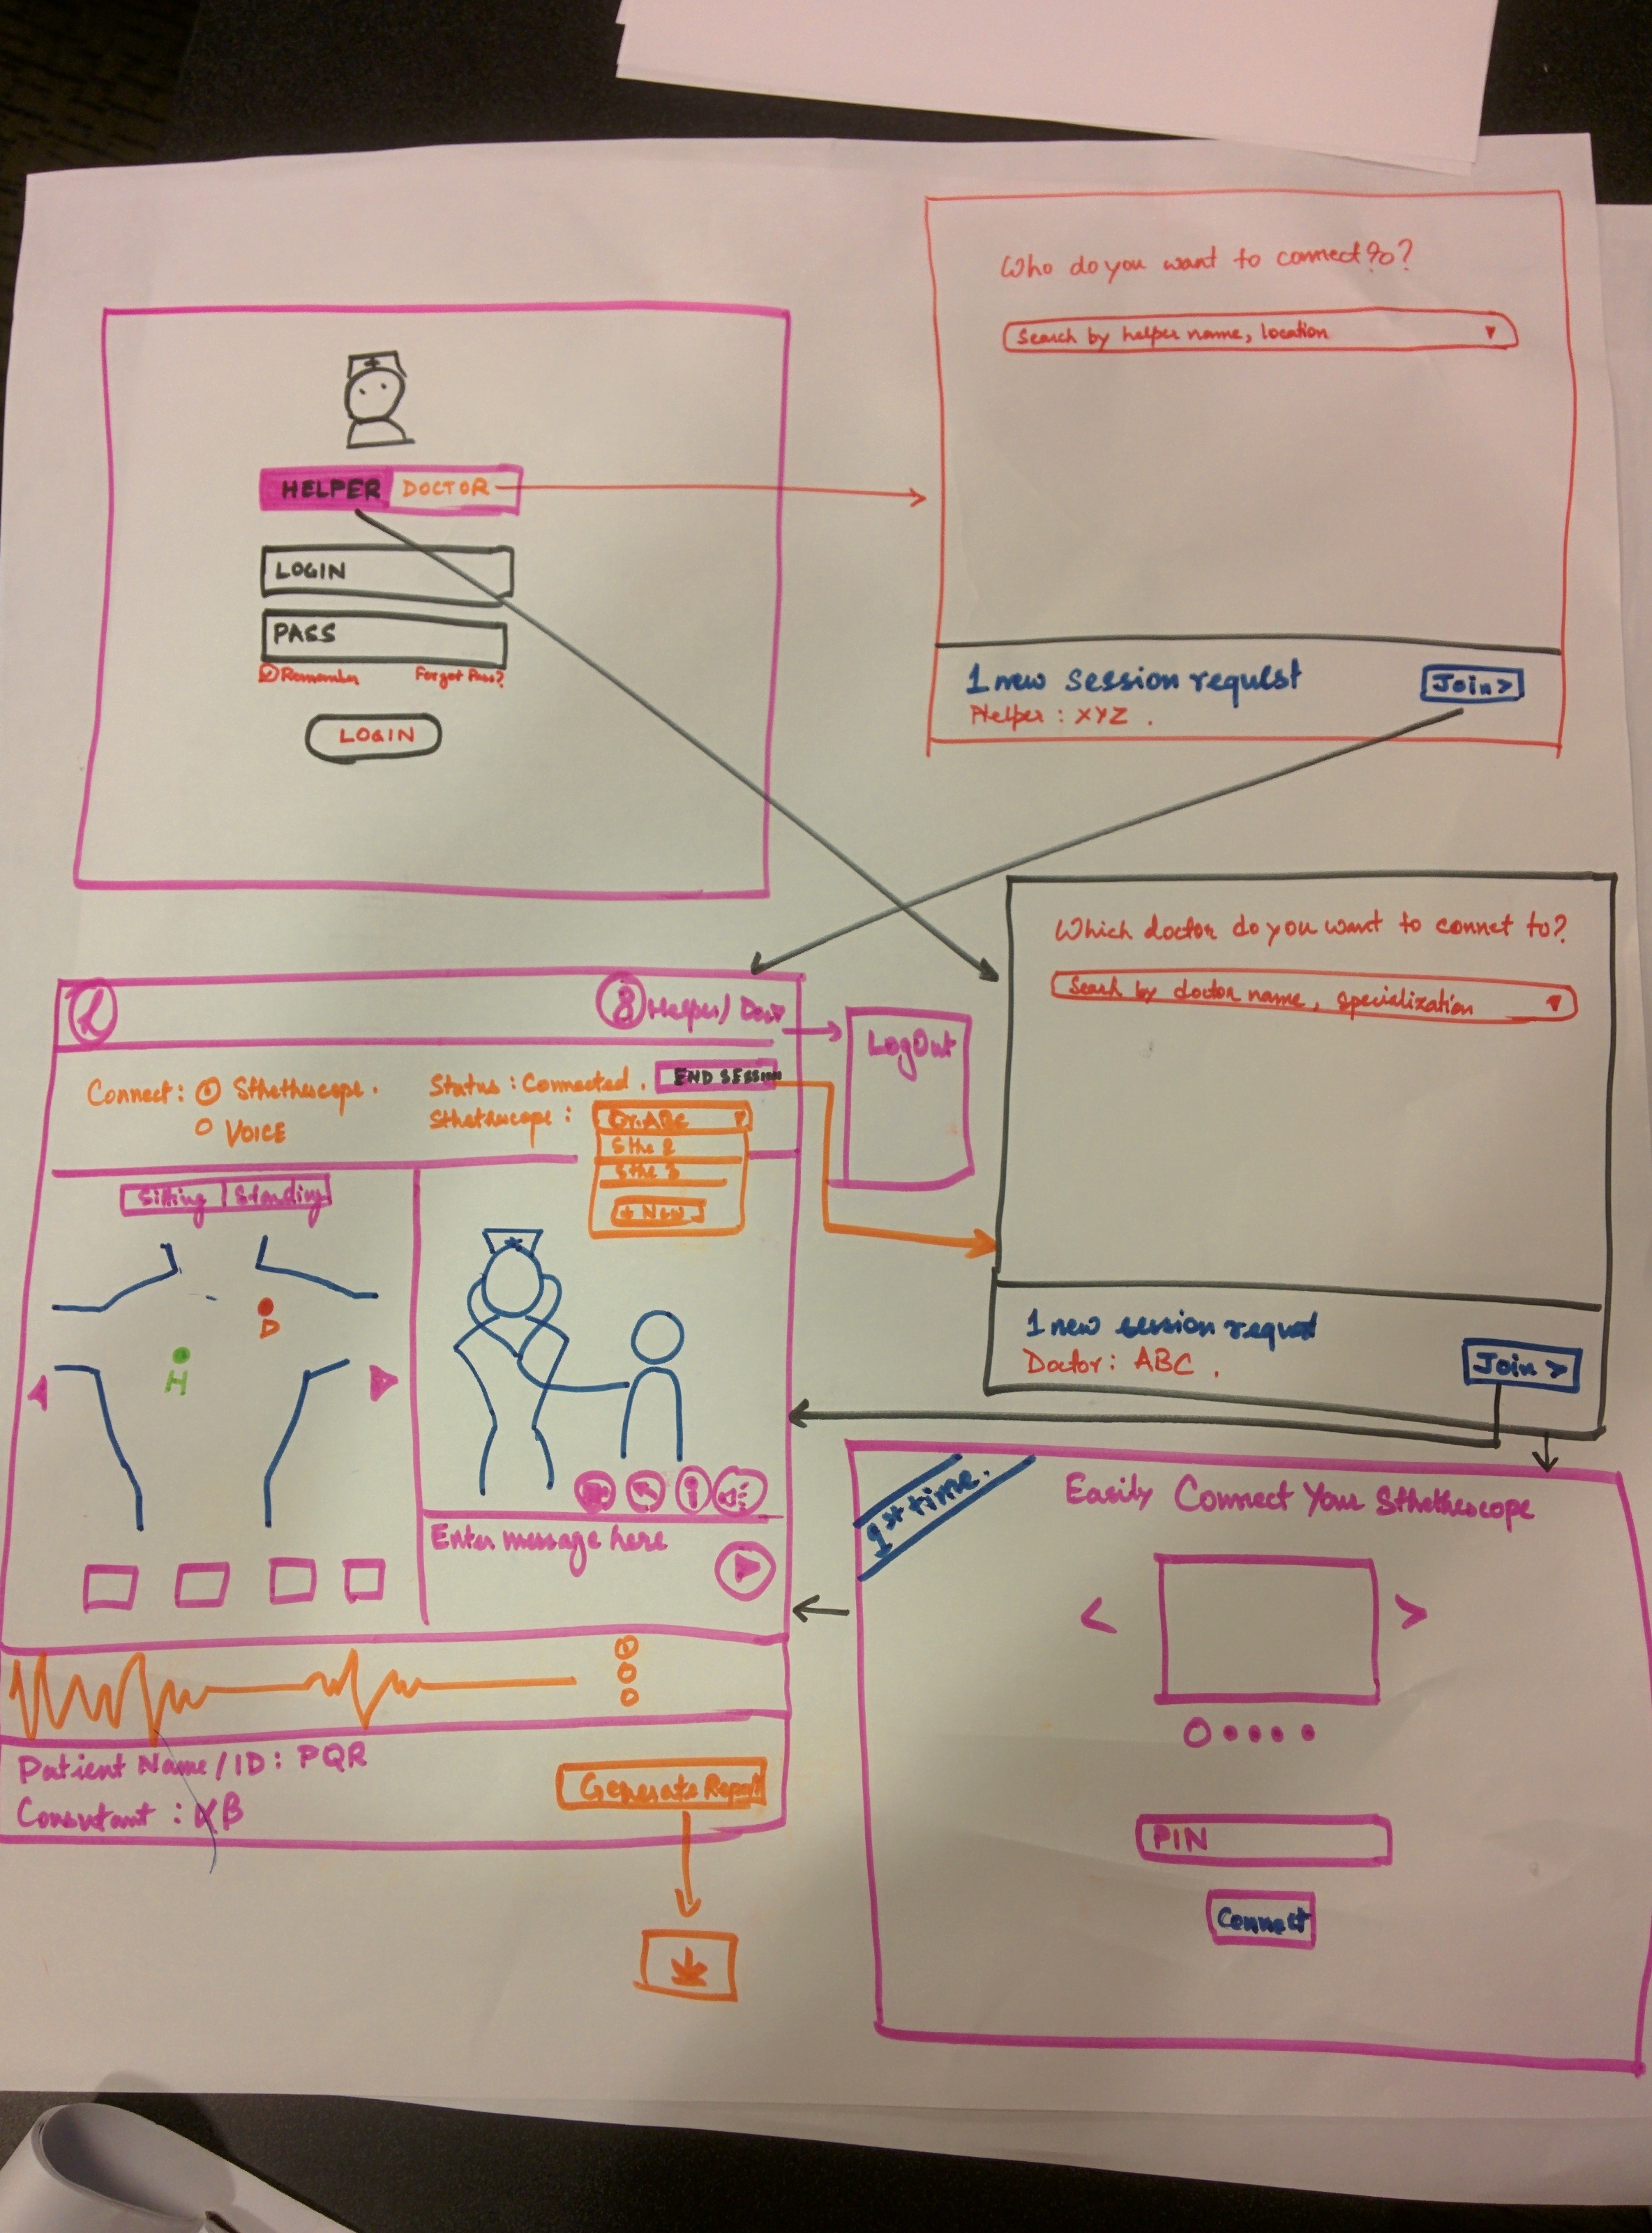 HELPER DOCTOR
LOGIN
PASS
Remember Forgot Pass?
LOGIN
Who do you want to connect to?
Search by helper name, location
1 new session request
Helper : XYZ .
Join >
Which doctor do you want to connet to?
Search by doctor name, specialization
1 new session request
Doctor: ABC .
Join >
Helper/
LogOut
Connect: Sthethescope .
VOICE
Status : Connected .
END SESSION
Sthethescope :
Dr.ABC
Sthe 2
Sthe 3
+ New
Sitting | Standing
D
H
Enter message here
Patient Name/ID: PQR
: KB
Generate Report
1st time.
Easily Connect Your Sthethescope
< >
PIN
Connect